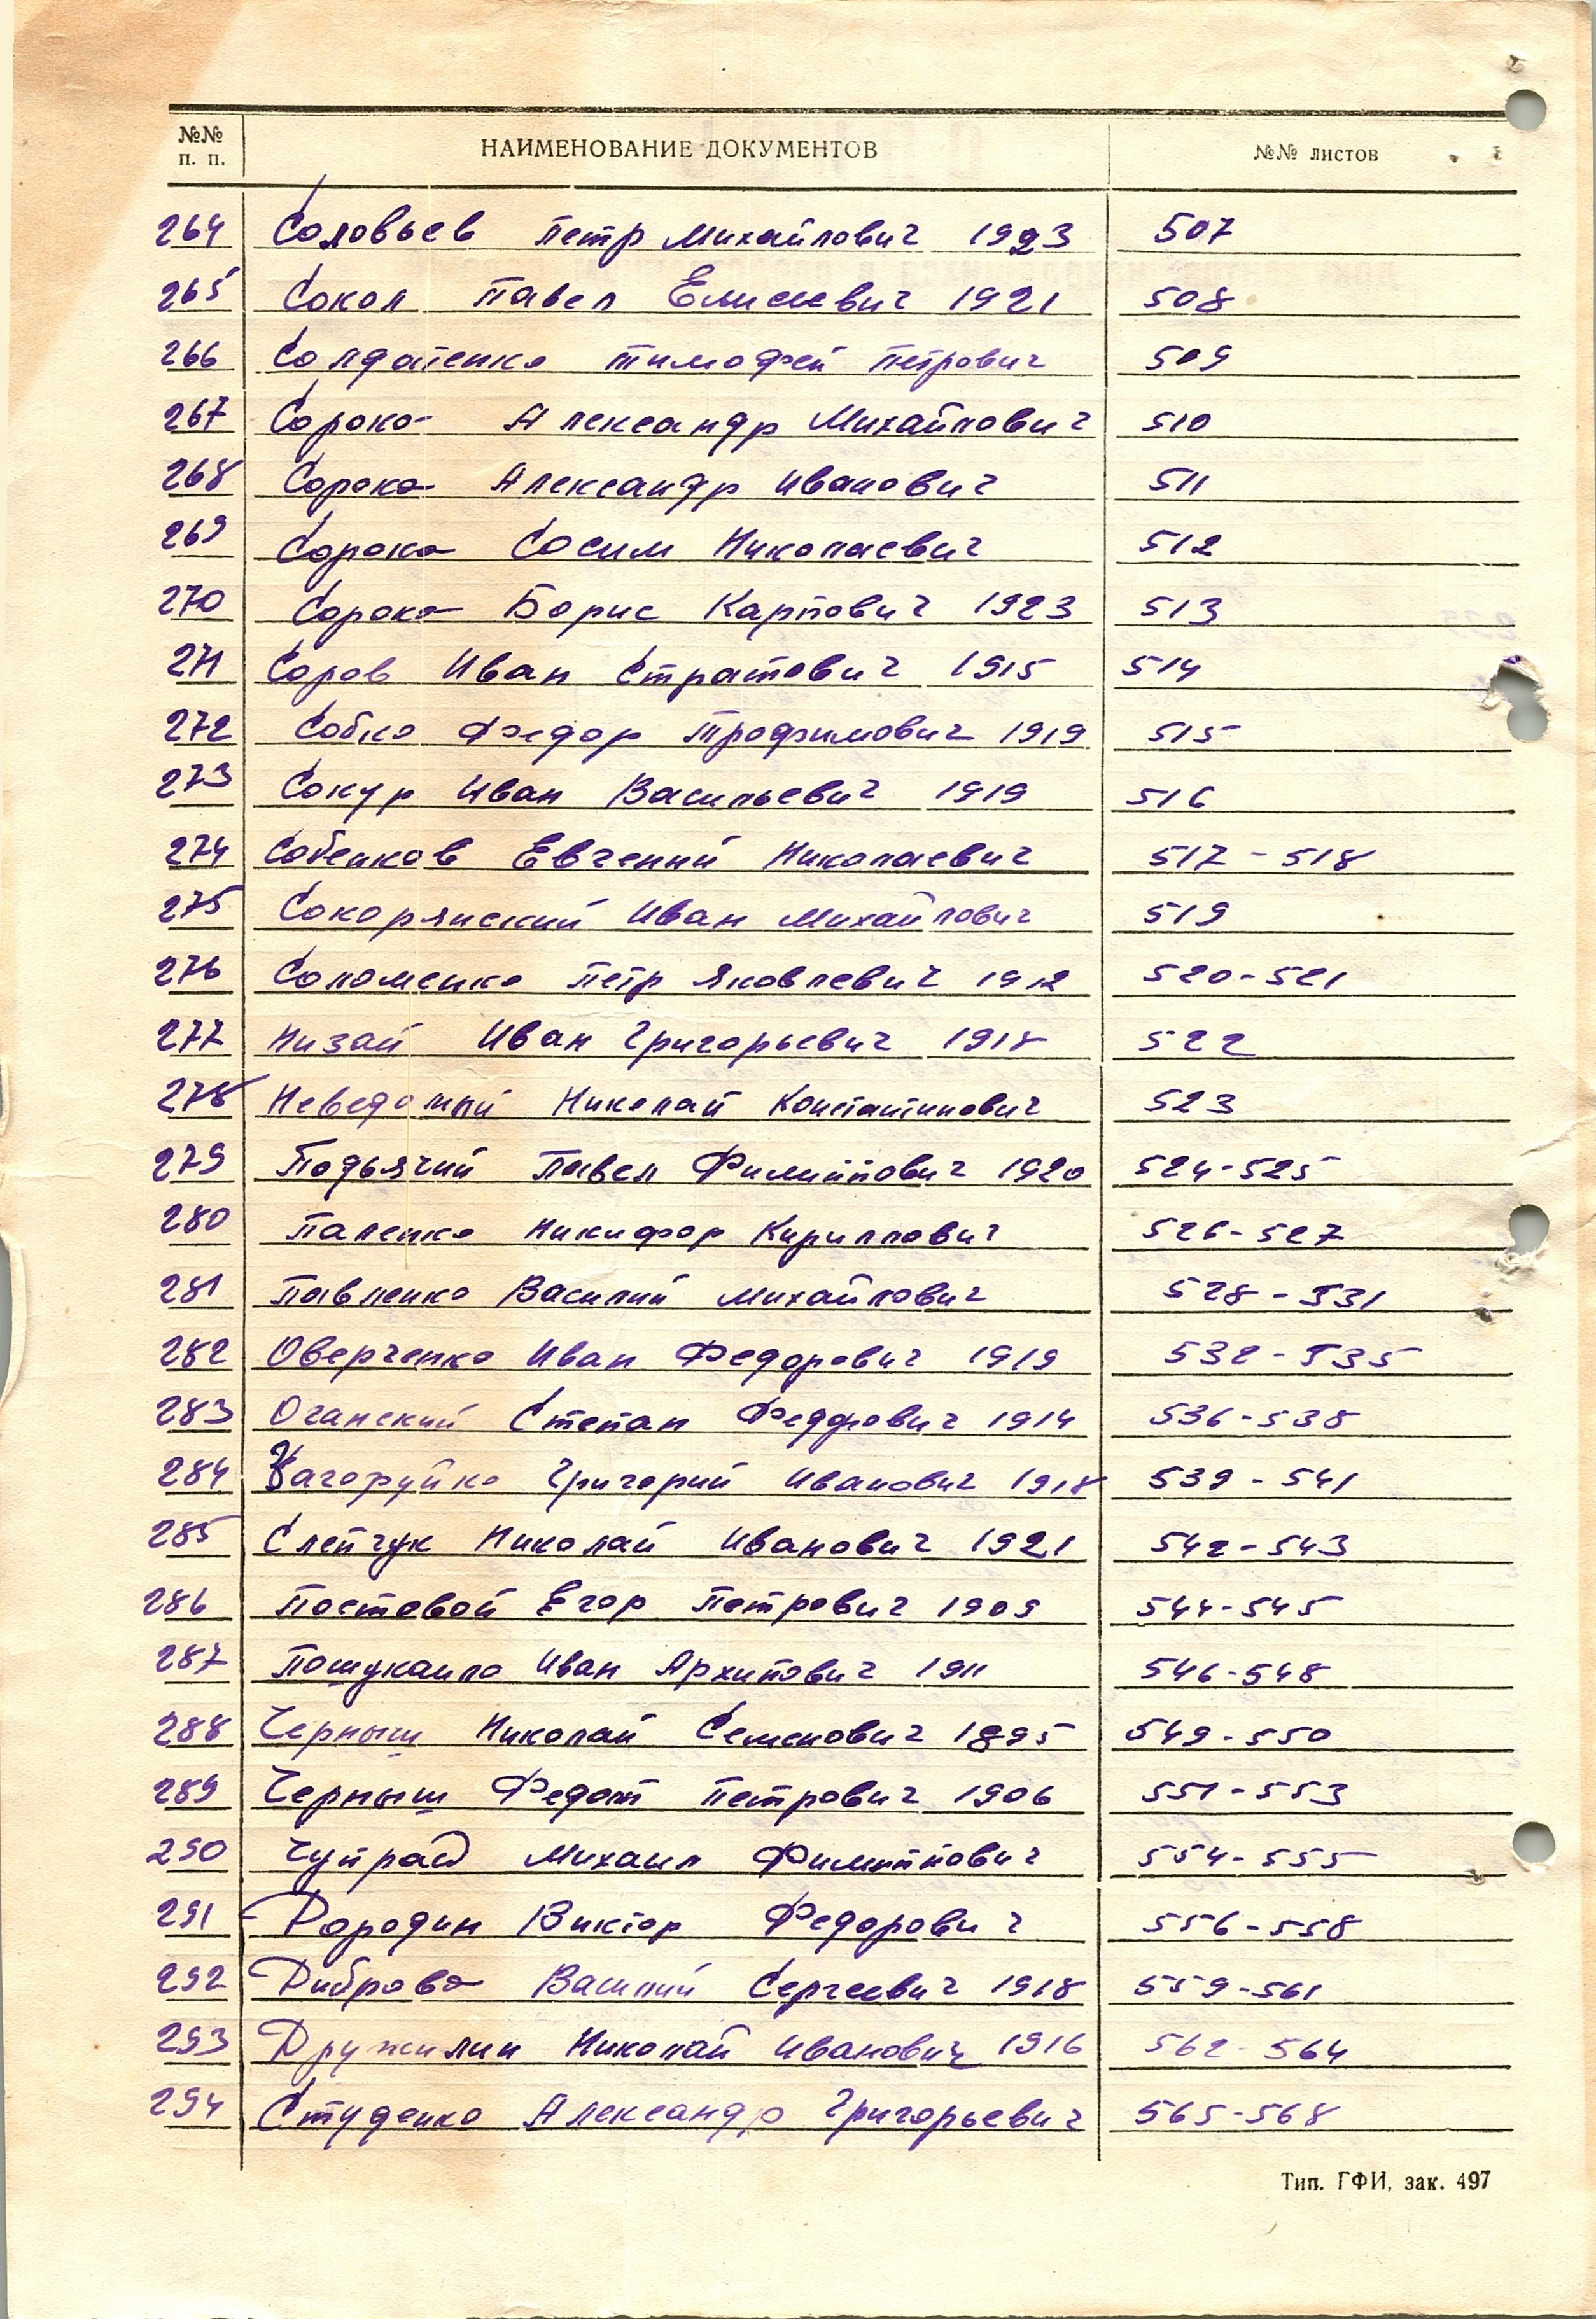 №№ п. п. НАИМЕНОВАНИЕ ДОКУМЕНТОВ №№ листов
264 Соловьев Петр Михайлович 1923 507
265 Сокол Павел Елисеевич 1921 508
266 Солдатенко Тимофей Петрович 509
267 Сорока Александр Михайлович 510
268 Сорока Александр Иванович 511
269 Сорока Сосим Николаевич 512
270 Сорока Борис Карпович 1923 513
271 Соров Иван Стратович 1915 514
272 Собко Федор Трофимович 1919 515
273 Сокур Иван Васильевич 1919 516
274 Собенков Евгений Николаевич 517-518
275 Сокорянский Иван Михайлович 519
276 Соломенко Петр Яковлевич 1912 520-521
277 Низай Иван Григорьевич 1918 522
278 Неведомый Николай Константинович 523
279 Подьячий Павел Филиппович 1920 524-525
280 Паленко Никифор Кириллович 526-527
281 Павленко Василий Михайлович 528-531
282 Оверченко Иван Федорович 1919 532-535
283 Оганский Степан Федорович 1914 536-538
284 Загоруйко Григорий Иванович 1918 539-541
285 Слепчук Николай Иванович 1921 542-543
286 Постовой Егор Петрович 1909 544-545
287 Пошукаило Иван Архипович 1911 546-548
288 Черныш Николай Семенович 1895 549-550
289 Черныш Федот Петрович 1906 551-553
290 Михаил Филиппович 554-555
291 Дородин Виктор Федорович 556-558
292 Диброва Василий Сергеевич 1918 559-561
293 Дружилин Николай Иванович 1916 562-564
294 Студенко Александр Григорьевич 565-568
Тип. ГФИ, зак. 497